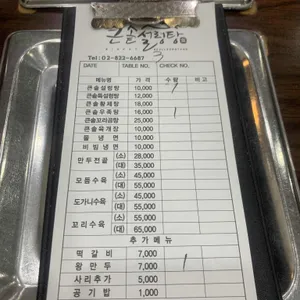 큰솥설렁탕
Tel : 02-833-6687
DATE TABLE NO. CHECK NO.
메뉴명 가 격 수 량 비 고
큰솥설렁탕 10,000 1
큰솥특설렁탕 12,000
큰솥황제탕 18,000
큰솥우족탕 16,000 1
큰솥꼬리곰탕 25,000
큰솥육개장 10,000
물 냉 면 10,000
비 빔 냉 면 10,000
만두전골 (소) 28,000
(대) 35,000
모듬수육 (소) 45,000
(대) 55,000
도가니수육 (소) 45,000
(대) 55,000
꼬리수육 (소) 55,000
(대) 65,000
추 가 메 뉴
떡 갈 비 7,000
왕 만 두 7,000 1
사리추가 5,000
공 기 밥 1,000